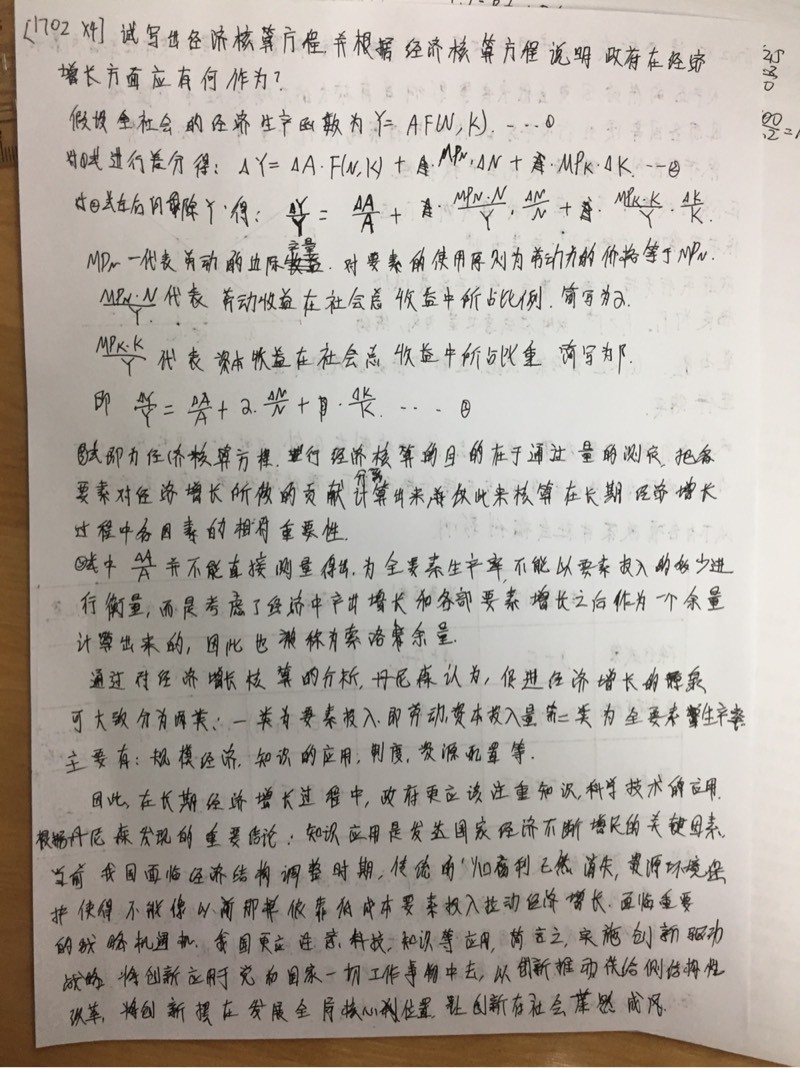 [1702 X4] 试写出经济核算方程,并根据经济核算方程说明政府在经济
增长方面应有何作为?
假设全社会的经济生产函数为 Y= AF(N,K). ---- ①
对①式进行差分得: ΔY= ΔA·F(N,K) + MPN·ΔN + MPK·ΔK. --- ②
对②式左右同时除Y.得: ΔY/Y = ΔA/A + MPN·N/Y · ΔN/N + MPK·K/Y · ΔK/K.
MPN 一代表劳动的边际产量. 对要素的使用原则为劳动力的价格等于MPN.
MPN·N/Y 代表 劳动收益在社会总收益中所占比例. 简写为α.
MPK·K/Y 代表 资本收益在社会总收益中所占比重 简写为β.
即 ΔY/Y = ΔA/A + α·ΔN/N + β·ΔK/K. --- ③
③式即为经济核算方程. 进行经济核算的目的在于通过量的测定, 把各
要素对经济增长所做的贡献分别计算出来,并以此来核算在长期经济增长
过程中各因素的相对重要性.
③式中 ΔA/A 并不能直接测量得出.为全要素生产率,不能以要素投入的多少进
行衡量,而是考虑了经济中产出增长和各部要素增长之后作为一个余量
计算出来的, 因此也被称为索洛余量.
通过对经济增长核算的分析,丹尼森认为,促进经济增长的源泉
可大致分为两类: 一类为要素投入.即劳动,资本投入量.第二类为全要素生产率
主要有: 规模经济, 知识的应用, 制度, 资源配置等.
因此,在长期经济增长过程中,政府更应该注重知识,科学技术的应用.
根据丹尼森发现的重要结论: 知识应用是发达国家经济不断增长的关键因素.
当前我国面临经济结构调整时期, 传统的人口福利已然消失, 资源环境保
护使得不能像以前那样依靠低成本要素投入拉动经济增长. 面临重要
的战略机遇期. 我国更应注意.科技,知识等应用, 简言之,实施创新驱动
战略 将创新应用于党和国家一切工作事物中去, 以创新推动供给侧结构性
改革, 将创新摆在发展全局核心位置 让创新在社会蔚然成风.